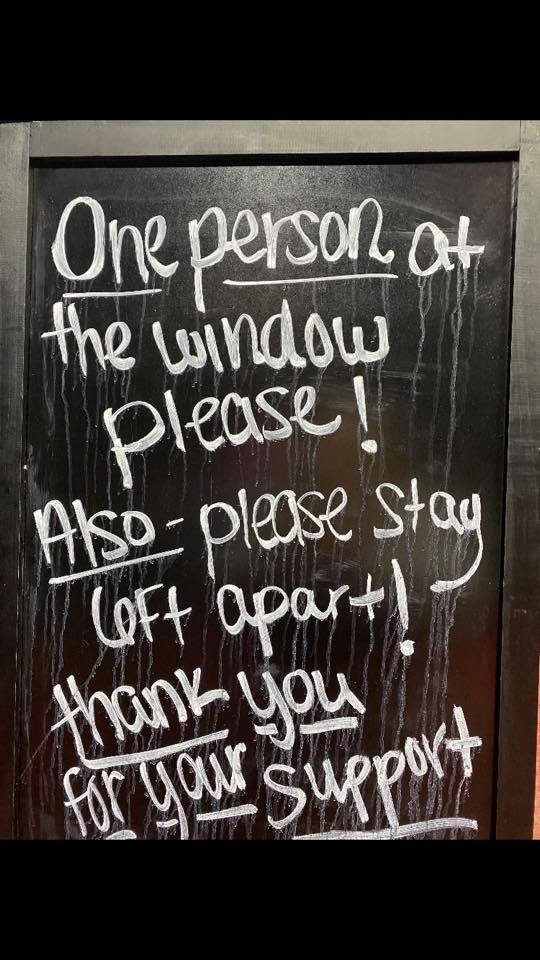 One person at
the window
please!
Also - please stay
6ft apart!
thank you
for your support